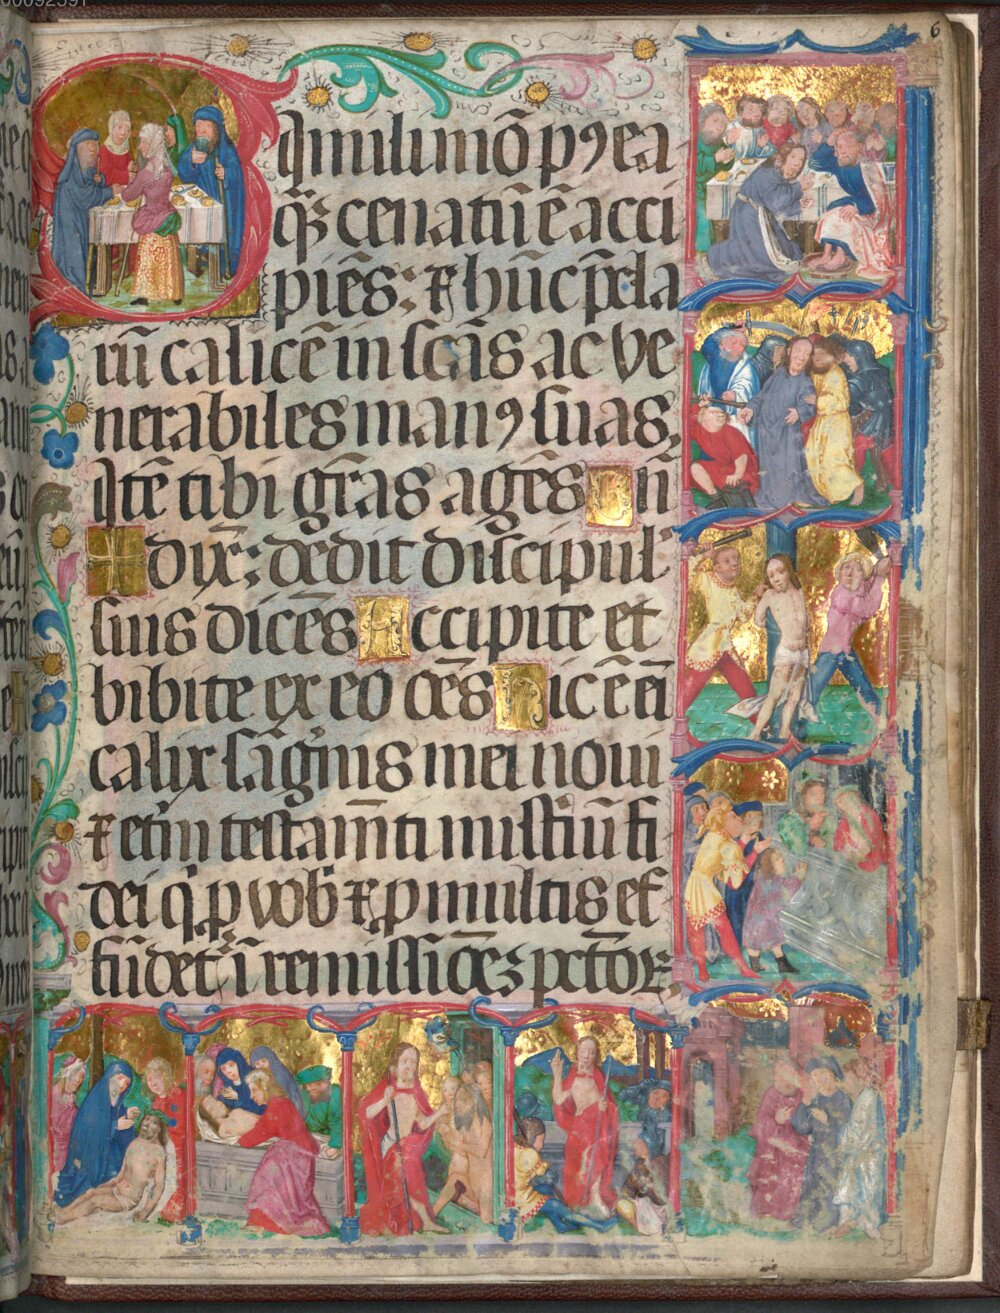 00092591
6
Simili mō pꝯ ea
qꝫ cenatū ē acci
piēs : ⁊ hūc p̄cla
rū calicē in scās ac ve
nerabiles manꝯ suas,
Itē tibi grās agēs bn̄
dix̄ ; dedit discipul'
suis dicēs Accipite et
bibite ex eo oēs Hic ē eī
calix sāgīnis mei noui
⁊ etīn testam̄ti mistiū fi
dei q̇ ꝓ vob̄ ⁊ ꝓ multis ef
fūdet' ī remissiōeꝫ pctōꝝ